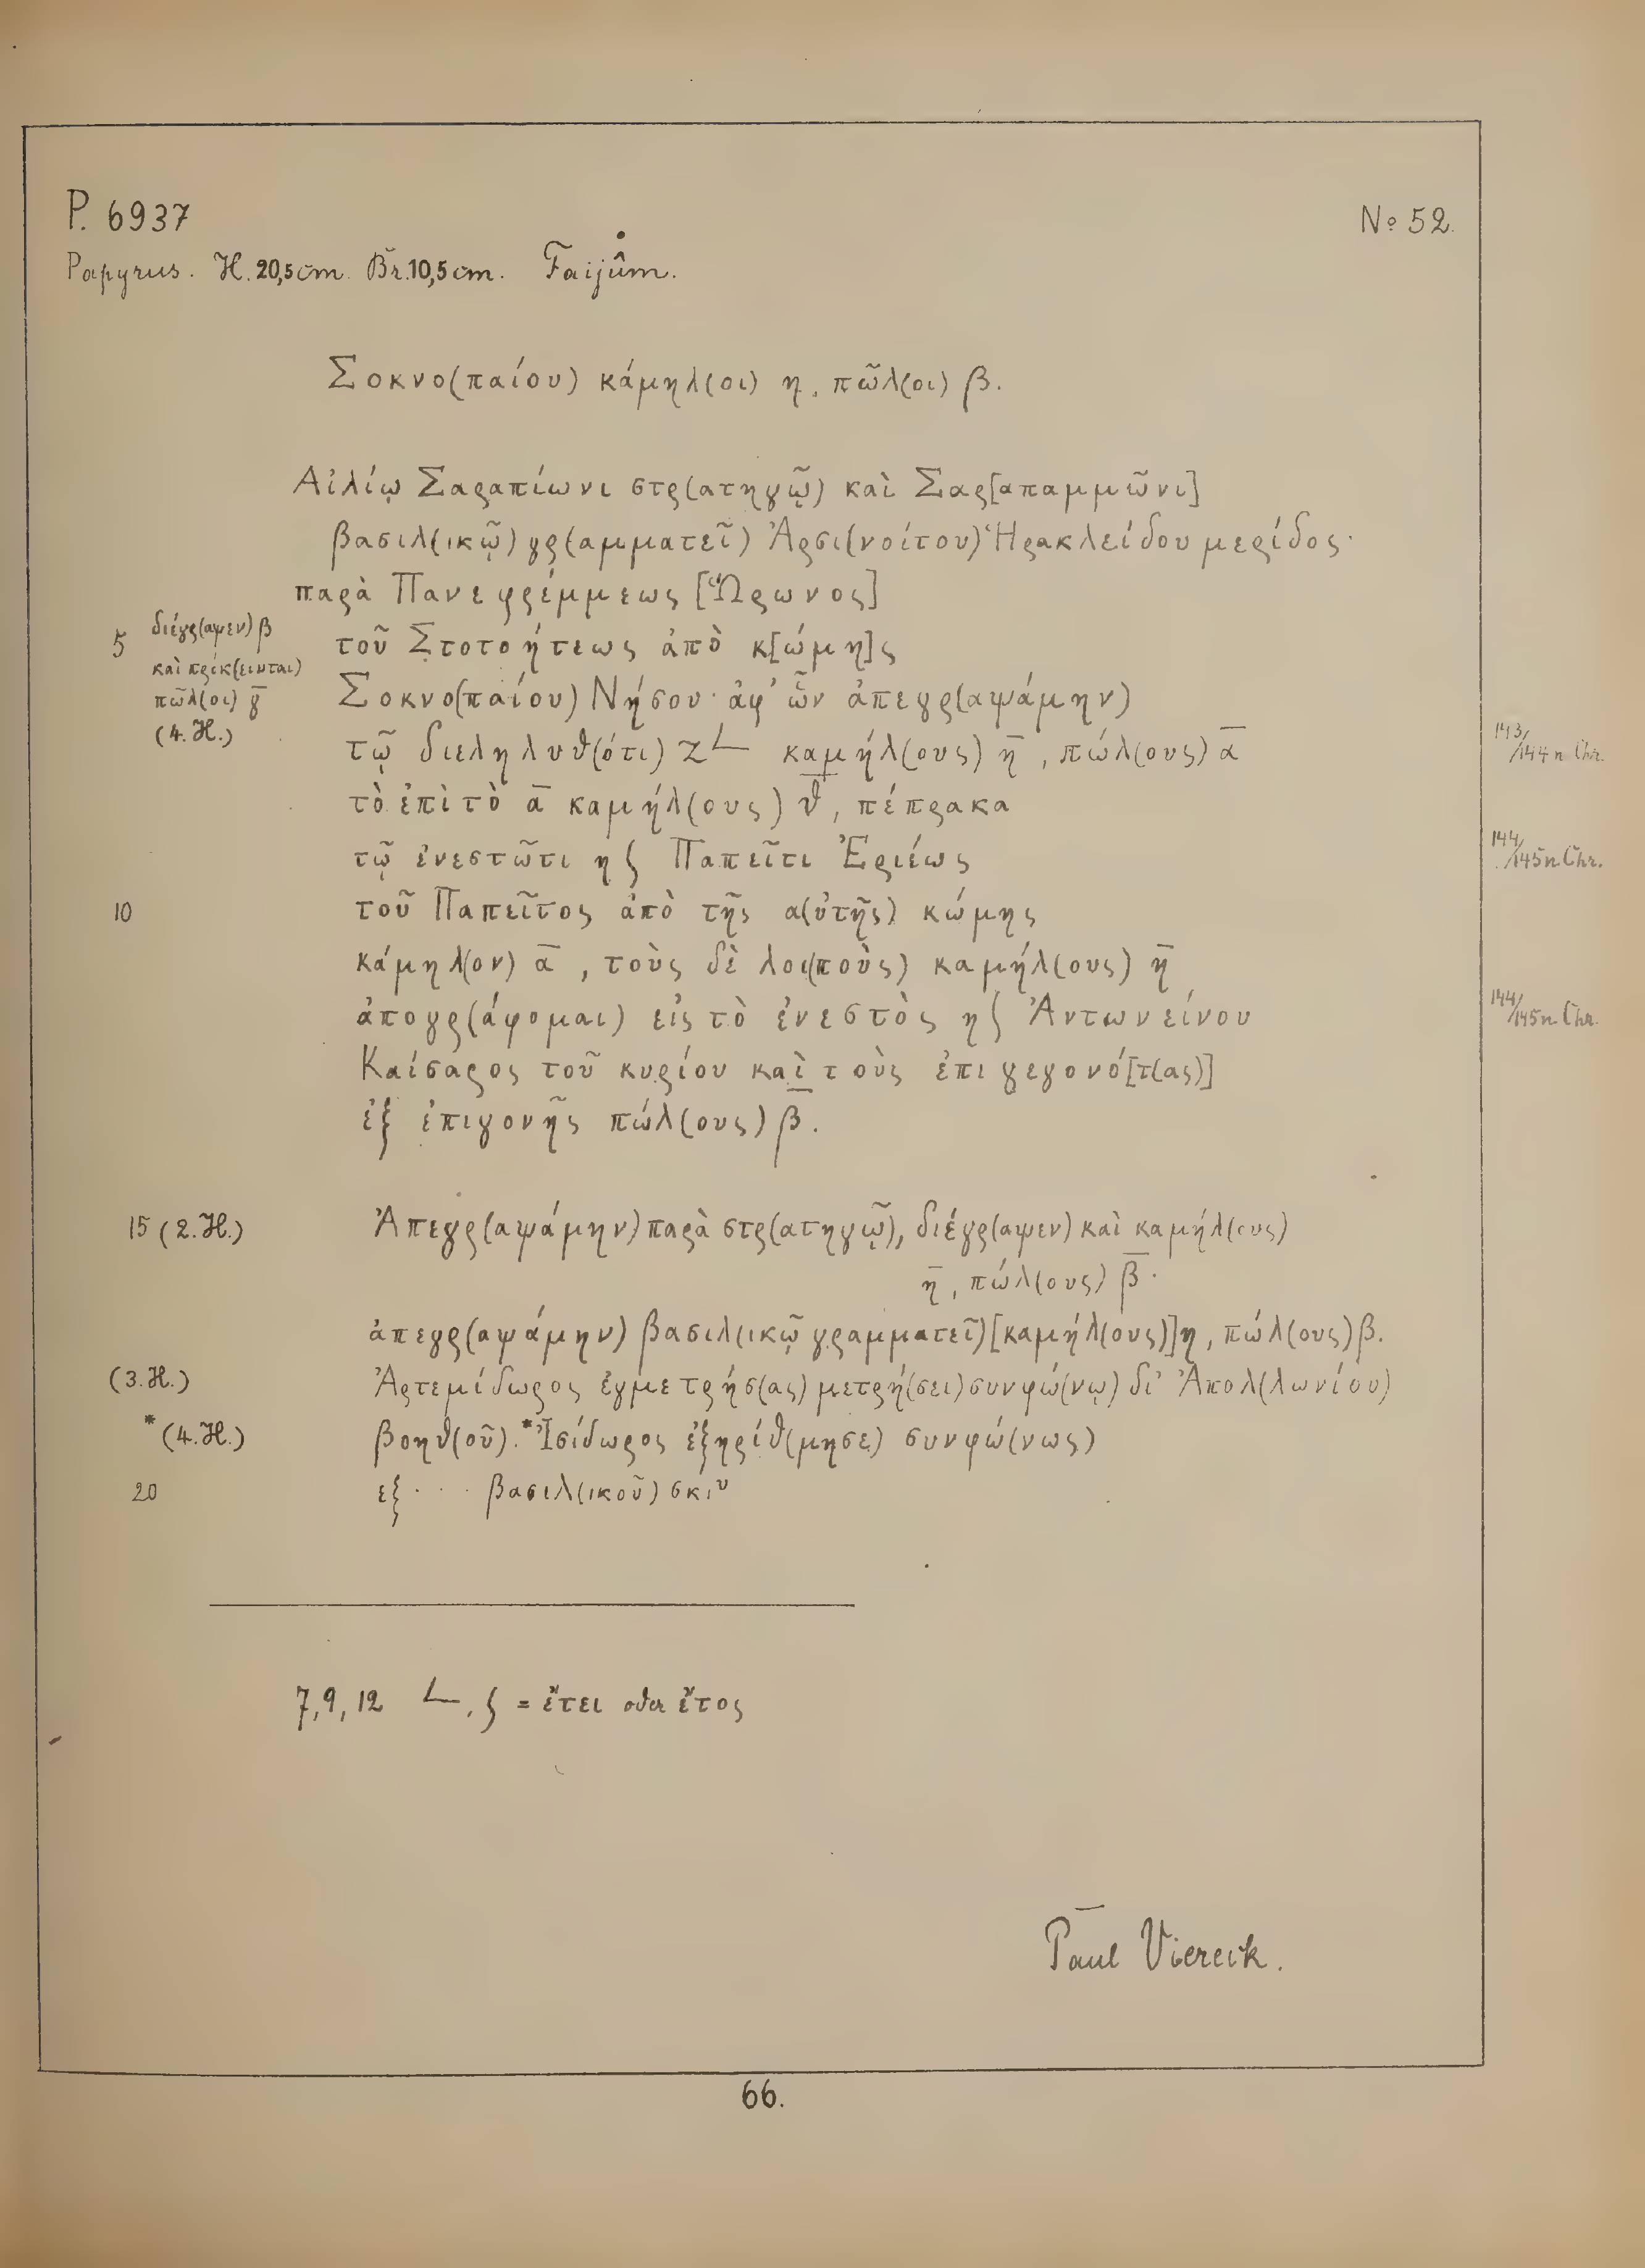 P. 6937
No 52.
Papyrus. H. 20,5 cm. Br. 10,5 cm. Faijûm.
Σοκνο(παίου) κάμηλ(οι) η, πῶλ(οι) β.
Αἰλίῳ Σαραπίωνι στρ(ατηγῷ) καὶ Σαρ[απαμμῶνι]
βασιλ(ικῷ) γρ(αμματεῖ) Ἀρσι(νοίτου) Ἡρακλείδου μερίδος·
παρὰ Πανεφρέμμεως [Ὥρωνος]
διέγρ(αψεν) β
5 τοῦ Στοτοήτεως ἀπὸ κ[ώμη]ς
καὶ πρόκ(εινται)
πῶλ(οι) γ̅
Σοκνο(παίου) Νήσου· ἀφ' ὧν ἀπεγρ(αψάμην)
(4. H.)
τῷ διεληλυθ(ότι) ζ𐅹 καμήλ(ους) η̅, πώλ(ους) α̅
143/144 n Chr.
τὸ ἐπὶ τὸ α̅ καμήλ(ους) θ̅, πέπρακα
τῷ ἐνεστῶτι η ʃ Παπεῖτι Ἑριέως
144/145 n. Chr.
10 τοῦ Παπεῖτος ἀπὸ τῆς α(ὐτῆς) κώμης
κάμηλ(ον) α̅, τοὺς δὲ λοι(ποὺς) καμήλ(ους) η̅
ἀπογρ(άφομαι) εἰς τὸ ἐνεστὸς η ʃ Ἀντωνείνου
144/145 n. Chr.
Καίσαρος τοῦ κυρίου καὶ τοὺς ἐπιγεγονό[τ(ας)]
ἐξ ἐπιγονῆς πώλ(ους) β̅.
15 (2. H.) Ἀπεγρ(αψάμην) παρὰ στρ(ατηγῷ), διέγρ(αψεν) καὶ καμήλ(ους)
η̅, πώλ(ους) β̅.
ἀπεγρ(αψάμην) βασιλ(ικῷ γραμματεῖ) [καμήλ(ους)] η, πώλ(ους) β.
(3. H.) Ἀρτεμίδωρος ἐγμετρήσ(ας) μετρή(σει) συνφώ(νῳ) δι' Ἀπολ(λωνίου)
*(4. H.) βοηθ(οῦ). *Ἰσίδωρος ἐξηρίθ(μησε) συνφώ(νως)
20 εξ . . . βασιλ(ικοῦ)
7, 9, 12 𐅹, ʃ = ἔτει oder ἔτος
Paul Viereck.
66.